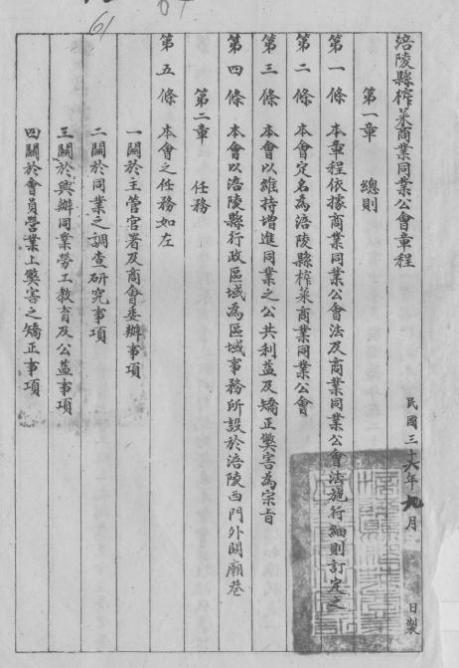 61
涪陵縣榨菜商業同業公會章程
民國三十六年九月 日製
第一章 總則
第一條 本章程依據商業同業公會法及商業同業公會法施行細則訂定之
第二條 本會定名為涪陵縣榨菜商業同業公會
第三條 本會以維持增進同業之公共利益及矯正弊害為宗旨
第四條 本會以涪陵縣行政區域為區域事務所設於涪陵西門外關廟巷
第二章 任務
第五條 本會之任務如左
一關於主管官署及商會委辦事項
二關於同業之調查研究事項
三關於興辦同業勞工教育及公益事項
四關於會員營業上弊害之矯正事項